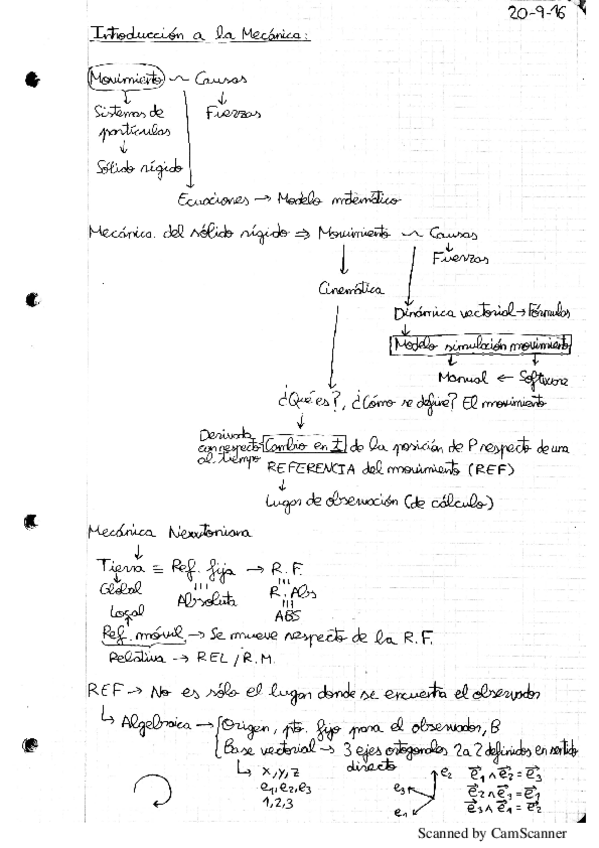 20-9-16
Introducción a la Mecánica:
Movimiento ~ Causas
↓ ↓
Sistemas de Fuerzas
partículas
↓
Sólido rígido
Ecuaciones → Modelo matemático
Mecánica del sólido rígido ⇒ Movimiento ~ Causas
↓
Fuerzas
Cinemática
Dinámica vectorial → Fórmulas
Modelo simulación movimiento
↓ ↓
Manual ← Software
¿Qué es?, ¿Cómo se define? El movimiento
↓
Derivada
con respecto
al tiempo
Cambio en t de la posición de P respecto de una
REFERENCIA del movimiento (REF)
↓
Lugar de observación (de cálculo)
Mecánica Newtoniana
↓
Tierra ≡ Ref. fija → R.F.
Global Absoluta R. Abs
Local ABS
Ref. móvil → Se mueve respecto de la R.F.
Relativa → REL / R.M.
REF → No es sólo el lugar donde se encuentra el observador
↳ Algebraica → Origen, pto. fijo para el observador, B
Base vectorial → 3 ejes ortogonales 2 a 2 definidos en sentido
directo
↳ x, y, z
e1, e2, e3
1, 2, 3
e2
e3
e1
e1 ∧ e2 = e3
e2 ∧ e3 = e1
e3 ∧ e1 = e2
Scanned by CamScanner